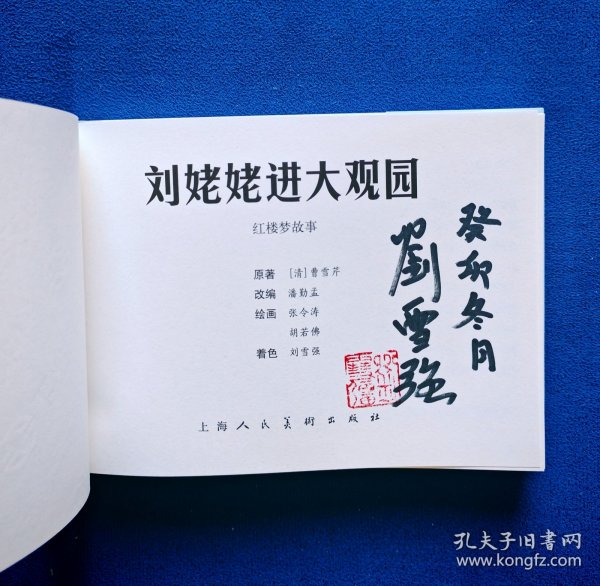 刘姥姥进大观园
红楼梦故事
原著 [清]曹雪芹
改编 潘勤孟
绘画 张令涛
胡若佛
着色 刘雪强
上海人民美術出版社
癸卯冬月
劉雪强
孔夫子旧书网
www.kongfz.com